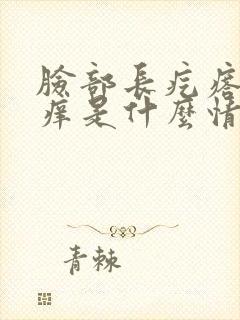 臉部長疙瘩
痒是什麼情
青棘